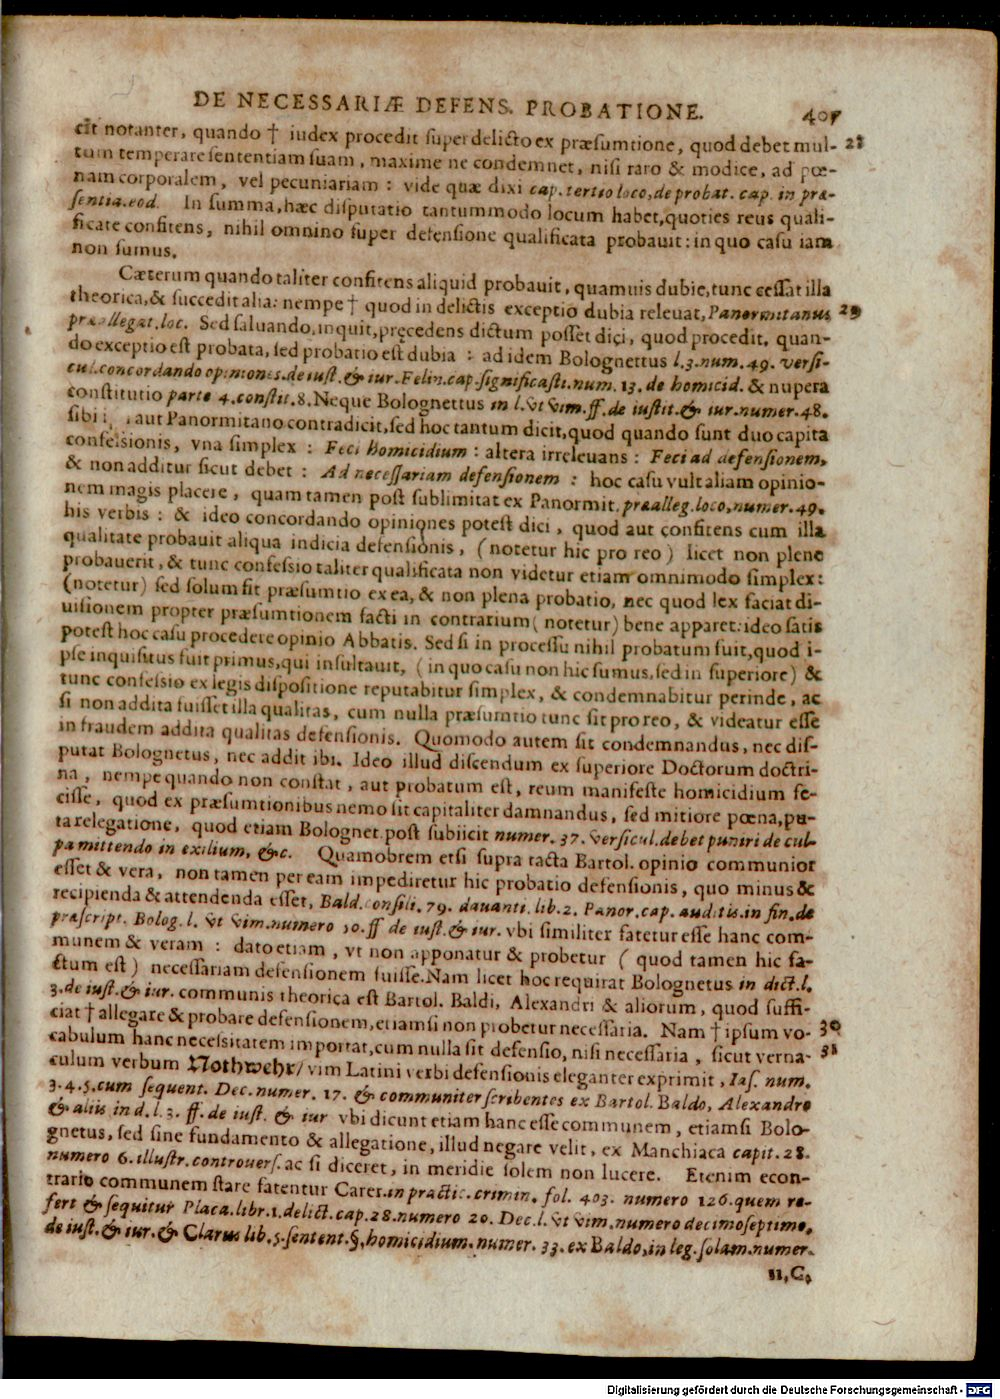 DE NECESSARIÆ DEFENS. PROBATIONE. 407
cit notanter, quando † iudex procedit super delicto ex præsumtione, quod debet mul- 28
tum temperare sententiam suam, maxime ne condemnet, nisi raro & modice, ad pœ-
nam corporalem, vel pecuniariam: vide quæ dixi cap. tertio loco, de probat. cap. in præ-
sentia. eod. In summa, hæc disputatio tantummodo locum habet, quoties reus quali-
ficate confitens, nihil omnino super defensione qualificata probauit: in quo casu iam
non sumus.
Cæterum quando taliter confitens aliquid probauit, quamuis dubie, tunc cessat illa
theorica, & succedit alia: nempe † quod in delictis exceptio dubia releuat, Panormitanus 29
præallegat. loc. Sed saluando, inquit, pręcedens dictum posset dici, quod procedit, quan-
do exceptio est probata, sed probatio est dubia: ad idem Bolognettus l. 3. num. 49. versi-
cul. concordando opiniones. de iust. & iur. Felin. cap. significasti. num. 13. de homicid. & nupera
constitutio parte 4. constit. 8. Neque Bolognettus in l. vt vim. ff. de iustit. & iur. numer. 48.
sibi aut Panormitano contradicit, sed hoc tantum dicit, quod quando sunt duo capita
confessionis, vna simplex: Feci homicidium: altera irreleuans: Feci ad defensionem,
& non additur sicut debet: Ad necessariam defensionem: hoc casu vult aliam opinio-
nem magis placere, quam tamen post sublimitat ex Panormit. præalleg. loco, numer. 49.
his verbis: & ideo concordando opiniones potest dici, quod aut confitens cum illa
qualitate probauit aliqua indicia defensionis, (notetur hic pro reo) licet non plene
probauerit, & tunc confessio taliter qualificata non videtur etiam omnimodo simplex:
(notetur) sed solum fit præsumtio ex ea, & non plena probatio, nec quod lex faciat di-
uisionem propter præsumtionem facti in contrarium (notetur) bene apparet: ideo satis
potest hoc casu procedere opinio Abbatis. Sed si in processu nihil probatum fuit, quod i-
pse inquisitus fuit primus, qui insultauit, (in quo casu non hic sumus, sed in superiore) &
tunc confessio ex legis dispositione reputabitur simplex, & condemnabitur perinde, ac
si non addita fuisset illa qualitas, cum nulla præsumtio tunc sit pro reo, & videatur esse
in fraudem addita qualitas defensionis. Quomodo autem sit condemnandus, nec dis-
putat Bolognetus, nec addit ibi. Ideo illud discendum ex superiore Doctorum doctri-
na, nempe quando non constat, aut probatum est, reum manifeste homicidium fe-
cisse, quod ex præsumtionibus nemo sit capitaliter damnandus, sed mitiore pœna, pu-
ta relegatione, quod etiam Bolognet. post subiicit numer. 37. versicul. debet puniri de cul-
pa mittendo in exilium, &c. Quamobrem etsi supra tacta Bartol. opinio communior
esset & vera, non tamen per eam impediretur hic probatio defensionis, quo minus &
recipienda & attendenda esset, Bald. consili. 79. dauanti. lib. 2. Panor. cap. auditis. in fin. de
præscript. Bolog. l. vt vim. numero 10. ff de iust. & iur. vbi similiter fatetur esse hanc com-
munem & veram: dato etiam, vt non apponatur & probetur (quod tamen hic fa-
ctum est) necessariam defensionem fuisse. Nam licet hoc requirat Bolognetus in dict. l.
3. de iust. & iur. communis theorica est Bartol. Baldi, Alexandri & aliorum, quod suffi-
ciat † allegare & probare defensionem, etiamsi non probetur necessaria. Nam † ipsum vo- 30
cabulum hanc necessitatem importat, cum nulla sit defensio, nisi necessaria, sicut verna- 31
culum verbum Nothwehr/ vim Latini verbi defensionis eleganter exprimit, Ias. num.
3. 4. 5. cum sequent. Dec. numer. 17. & communiter scribentes ex Bartol. Baldo, Alexandro
& aliis in d. l. 3. ff. de iust. & iur vbi dicunt etiam hanc esse communem, etiamsi Bolo-
gnetus, sed sine fundamento & allegatione, illud negare velit, ex Manchiaca capit. 28.
numero 6. illustr. controuers. ac si diceret, in meridie solem non lucere. Etenim econ-
trario communem stare fatentur Carer. in practic. crimin. fol. 403. numero 126. quem re-
fert & sequitur Placa. libr. 1. delict. cap. 28. numero 20. Dec. l. vt vim. numero decimoseptimo,
de iust. & iur. & Clarus lib. 5. sentent. §. homicidium. numer. 33. ex Baldo, in leg. solam. numer.
11, C.
Digitalisierung gefördert durch die Deutsche Forschungsgemeinschaft - DFG